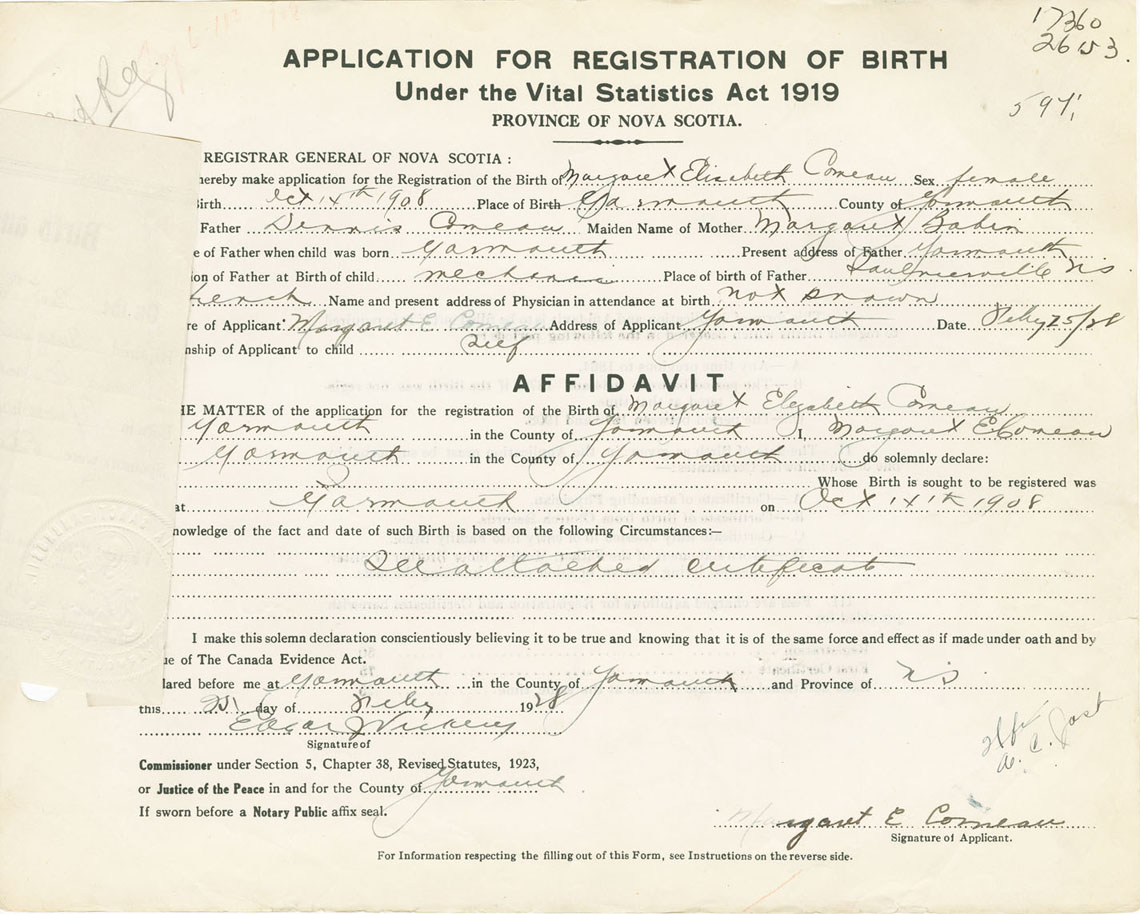 17360
2653.
597
APPLICATION FOR REGISTRATION OF BIRTH
Under the Vital Statistics Act 1919
PROVINCE OF NOVA SCOTIA.
REGISTRAR GENERAL OF NOVA SCOTIA :
hereby make application for the Registration of the Birth of Margaret Elisabeth Comeau Sex female
Birth Oct 14th 1908 Place of Birth Yarmouth County of Yarmouth
Father Dennis Comeau Maiden Name of Mother Margaret Babin
e of Father when child was born Yarmouth Present address of Father Yarmouth
ion of Father at Birth of child mechanic Place of birth of Father Saulnierville NS
french Name and present address of Physician in attendance at birth not known
re of Applicant Margaret E Comeau Address of Applicant Yarmouth Date Feby 25/28
nship of Applicant to child Self
AFFIDAVIT
HE MATTER of the application for the registration of the Birth of Margaret Elizabeth Comeau
Yarmouth in the County of Yarmouth I, Margaret E Comeau
Yarmouth in the County of Yarmouth do solemnly declare:
Whose Birth is sought to be registered was
at Yarmouth on Oct 14th 1908
nowledge of the fact and date of such Birth is based on the following Circumstances:—
See attached certificate
I make this solemn declaration conscientiously believing it to be true and knowing that it is of the same force and effect as if made under oath and by
ue of The Canada Evidence Act.
lared before me at Yarmouth in the County of Yarmouth and Province of NS
this 25 day of Feby 1928
Edgar J Vickery
Signature of
Commissioner under Section 5, Chapter 38, Revised Statutes, 1923,
or Justice of the Peace in and for the County of Yarmouth
If sworn before a Notary Public affix seal.
Margaret E Comeau
Signature of Applicant.
For Information respecting the filling out of this Form, see Instructions on the reverse side.